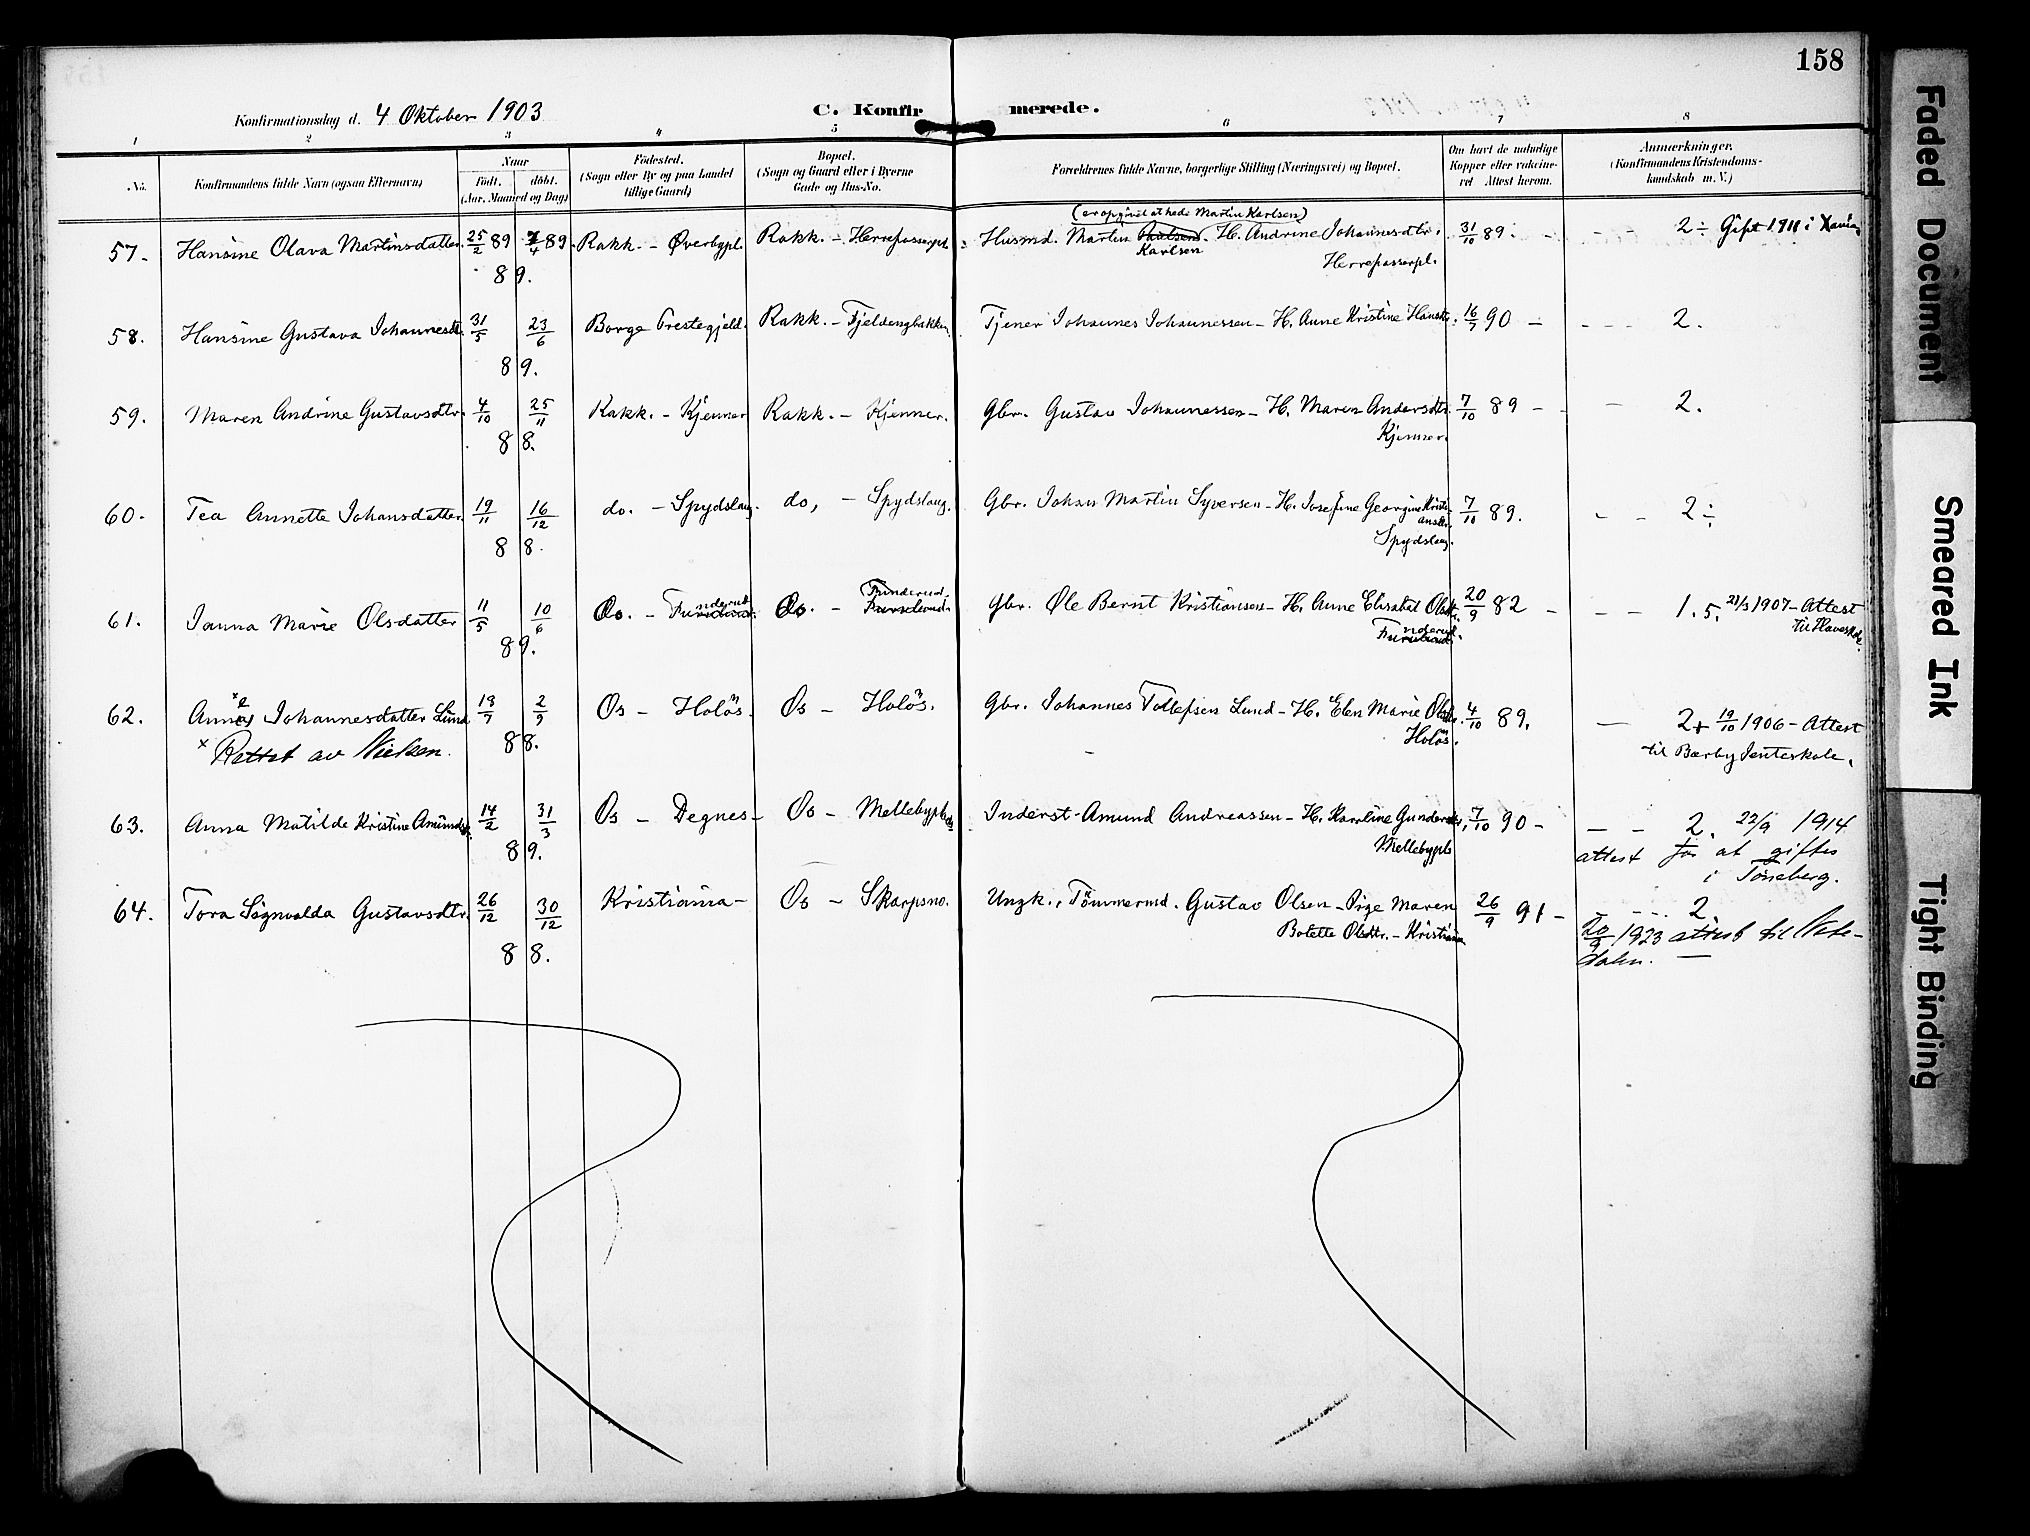 158
Konfirmationsdag d. 4 Oktober 1903 C. Konfirmerede.
1 2 3 4 5 6 7 8
No. Konfirmandens fulde Navn (ogsaa Efternavn) Naar Født, døbt. (Aar, Maaned og Dag) Fødested. (Sogn eller By og paa Landet tillige Gaard) Bopæl. (Sogn og Gaard eller i Byerne Gade og Hus-No. Forældrenes fulde Navne, borgerlige Stilling (Næringsvei) og Bopæl. Om havt de naturlige Kopper eller vaccineret Attest herom. Anmærkninger. (Konfirmandens Kristendomskundskab m. V.)
(er opgivet at hede Martin Karlsen)
57. Hansine Olava Martinsdatter. 25/2 89 7/4 89 Rakk. – Øverbypl. Rakk. – Herrepasserpl. Husmd. Martin Paulsen. H. Andrine Johannesdtr. 31/10 89. – – 2 ÷ Gift 1911 i
89. Karlsen Herrepasserpl.
58. Hansine Gustava Johannesdtr. 31/5 23/6 Borge Prestegjeld. Rakk. – Fjeldengbakken Tjener Johannes Johannessen – H. Anne Kristine Hansdtr. 16/7 90 – – – – 2.
89.
59. Maren Andrine Gustavsdtr. 4/10 25/11 Rakk. – Kjenner Rakk. – Kjenner. Gbr. Gustav Johannessen – H. Maren Andersdtr. 7/10 89 – – 2.
88. Kjenner.
60. Tea Annette Johansdatter. 19/11 16/12 do. – Spydslaug. do, – Spydslaug. Gbr. Johan Martin Syversen – H. Josefine Georgine Kristiansdtr. 7/10 89. – – 2 ÷
88. Spydslaug.
61. Janna Marie Olsdatter 11/5 10/6 Do. – Funderud. Do. – Funderud. Gbr. Ole Bernt Kristiansen – H. Anne Elisabet Olsdtr. 20/9 82 – – – 1.5. 21/3 1907 – Attest
89. Funderud. til Haveskole.
62. Anne Johannesdatter Lund 19/7 2/9 Os – Holøs. Os – Holøs. Gbr. Johannes Tollefsen Lund – H. Elen Marie Olsdtr. 4/10 89. – 2+ 19/10 1906 – Attest
x Rettet av Nielsen. 88. Holøs. til Bærby Jenteskole.
63. Anna Matilde Kristine Amundsdtr. 14/2 31/3 Os – Degnes – Os – Mellebypl. Inderst – Amund Andreassen – H. Karoline Gundersdtr, 7/10 90 – – – 2. 22/9 1914
89. Mellebypl. attest for at giftes
i Tönsberg.
64. Tora Sögnvalda Gustavsdtr. 26/12 30/12 Kristiania – Os – Skarpsno. Ungk., Tömmermd. Gustav Olsen – Pige Maren 26/9 91 – – – 2
88. Botette Olsdtr. – Kristiania 20/9 1923 attest til Nitedalen. –
Faded Document
Smeared Ink
Tight Binding